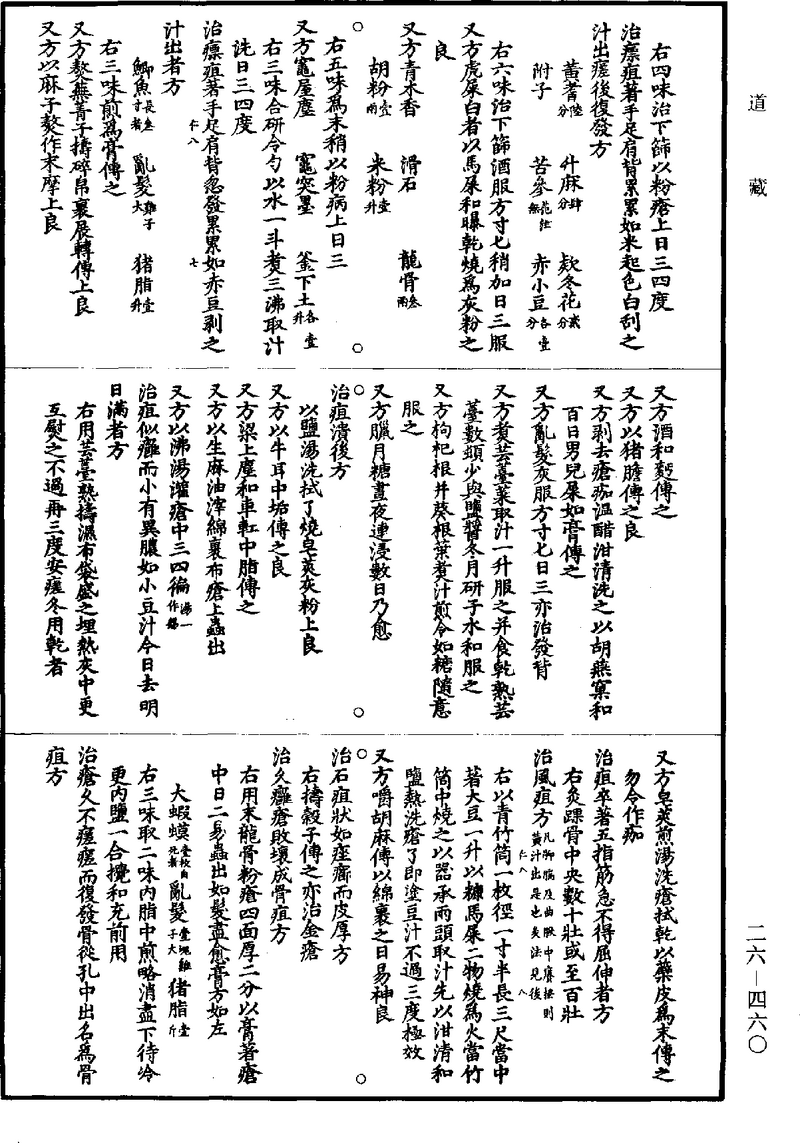 道藏
右四味治下篩以粉瘡上日三四度
治瘭疽著手足肩背累累如米起色白刮之
汁出瘥後復發方
黃耆陸分 升麻肆分 款冬花貳分
附子 苦參 赤小豆各壹分
右六味治下篩酒服方寸匕稍加日三服
又方虎屎白者以馬屎和曝乾燒為灰粉之
良
又方青木香 滑石 龍骨叁兩
胡粉壹兩 米粉壹升
右五味為末稍以粉病上日三
又方竈屋塵 竈突墨 釜下土各壹升
右三味合研令勻以水一斗煮三沸取汁
洗日三四度
治瘭疽著手足肩背忽發累累如赤豆剥之
汁出者方
鯽魚長叁寸者 亂髮雞子大 猪脂壹升
右三味煎為膏傅之
又方熬蕪菁子擣碎帛裹展轉傅上良
又方以麻子熬作末摩上良
仁八 七
又方酒和麪傅之
又方以猪膽傅之良
又方剥去瘡痂溫醋泔清洗之以胡燕窠和
百日男兒屎如膏傅之
又方亂髮灰服方寸匕日三亦治發背
又方煮芸薹菜取汁一升服之并食乾熟芸
薹數頓少與鹽醬冬月研子水和服之
又方枸杞根并葵根葉煮汁煎令如糖隨意
服之
又方臘月糖晝夜連浸數日乃愈
治疽潰後方
以鹽湯洗拭了燒皂莢灰粉上良
又方以牛耳中垢傅之良
又方梁上塵和車釭中脂傅之
又方以生麻油滓綿裹布瘡上蟲出
又方以沸湯灌瘡中三四徧湯一作餳
治疽似癰而小有異膿如小豆汁今日去明
日滿者方
右用芸薹熟擣濕布袋盛之埋熱灰中更
互熨之不過再三度安瘥冬用乾者
又方皂莢煎湯洗瘡拭乾以蘗皮為末傅之
勿令作痂
治疽卒著五指筋急不得屈伸者方
右灸踝骨中央數十壯或至百壯
治風疽方凡脚腨及曲䐐中癢搔則黃汁出是也灸法見後
仁八 八
右以青竹筒一枚徑一寸半長三尺當中
著大豆一升以糠馬屎二物燒為火當竹
筒中燒之以器承兩頭取汁先以泔清和
鹽熱洗瘡了即塗豆汁不過三度極效
又方嚼胡麻傅以綿裹之日易神良
治石疽狀如痤癤而皮厚方
右擣穀子傅之亦治金瘡
治久癰瘡敗壞成骨疽方
右用末龍骨粉瘡四面厚二分以膏著瘡
中日二易蟲出如髮盡愈膏方如左
大蝦蟇壹枚自死者 亂髮壹塊雞子大 猪脂壹斤
右三味取二味內脂中煎略消盡下待冷
更內鹽一合攪和充前用
治瘡久不瘥瘥而復發骨從孔中出名為骨
疽方
二六—四六〇